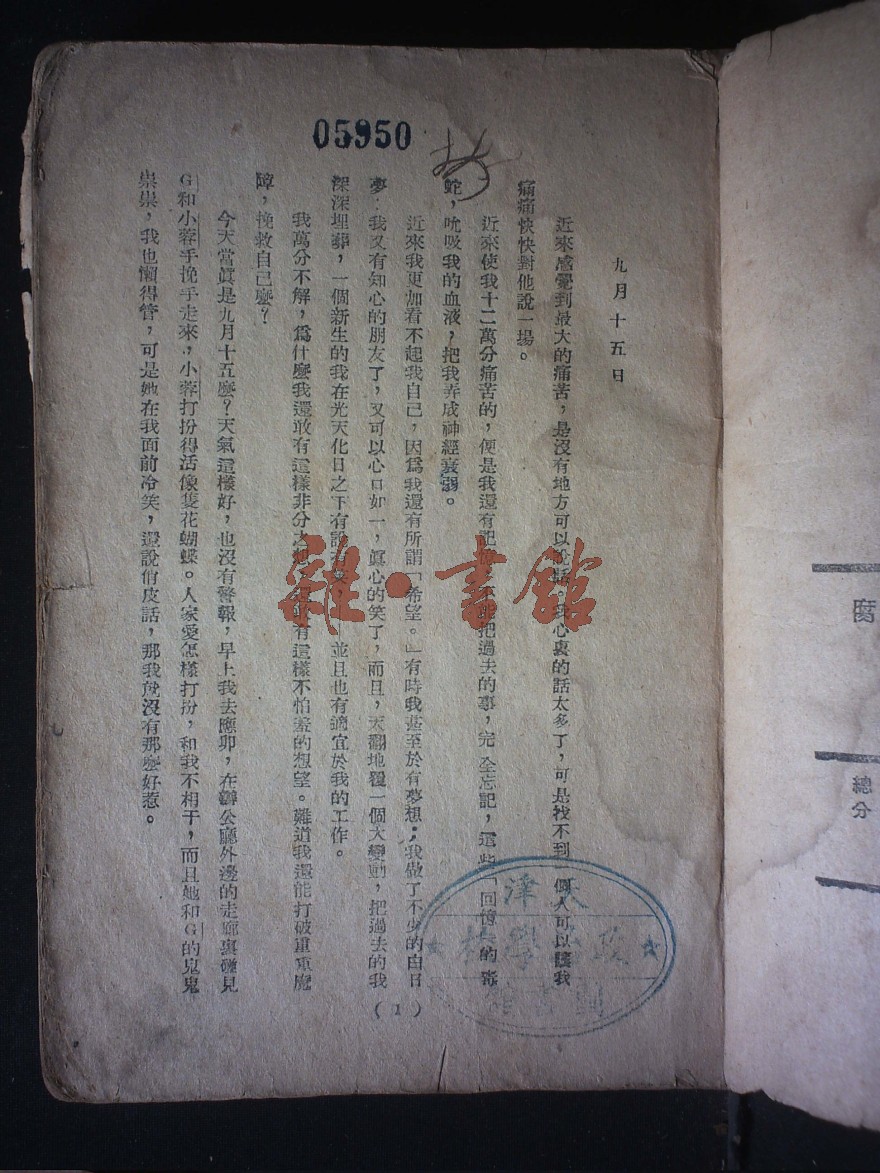 05950
九月十五日
近來感覺到最大的痛苦，是沒有地方可以說話。我心裏的話太多了，可是找不到一個人可以讓我
痛痛快快對他說一場。
近來使我十二萬分痛苦的，便是我還有記憶，不能把過去的事，完全忘記，這些「回憶」的毒
蛇，吮吸我的血液，把我弄成神經衰弱。
近來我更加看不起我自己，因爲我還有所謂「希望。」有時我甚至於有夢想；我做了不少的白日
夢：我又有知心的朋友了，又可以心口如一，眞心的笑了，而且，天翻地覆一個大變動，把過去的我
深深埋葬，一個新生的我在光天化日之下有說有笑，——並且也有適宜於我的工作。
我萬分不解，爲什麼我還敢有這樣非分之想，還敢有這樣不怕羞的想望。難道我還能打破重重魔
障，挽救自己麼？
今天當眞是九月十五麼？天氣這樣好，也沒有警報，早上我去應卯，在辦公廳外邊的走廊裏碰見
G和小蓉手挽手走來，小蓉打扮得活像隻花蝴蝶。人家愛怎樣打扮，和我不相干，而且她和G的鬼鬼
祟祟，我也懶得管，可是她在我面前冷笑，還說俏皮話，那我就沒有那麼好惹。
(1)
雜·書館
天津
政治學校
圖書館
腐
總
分